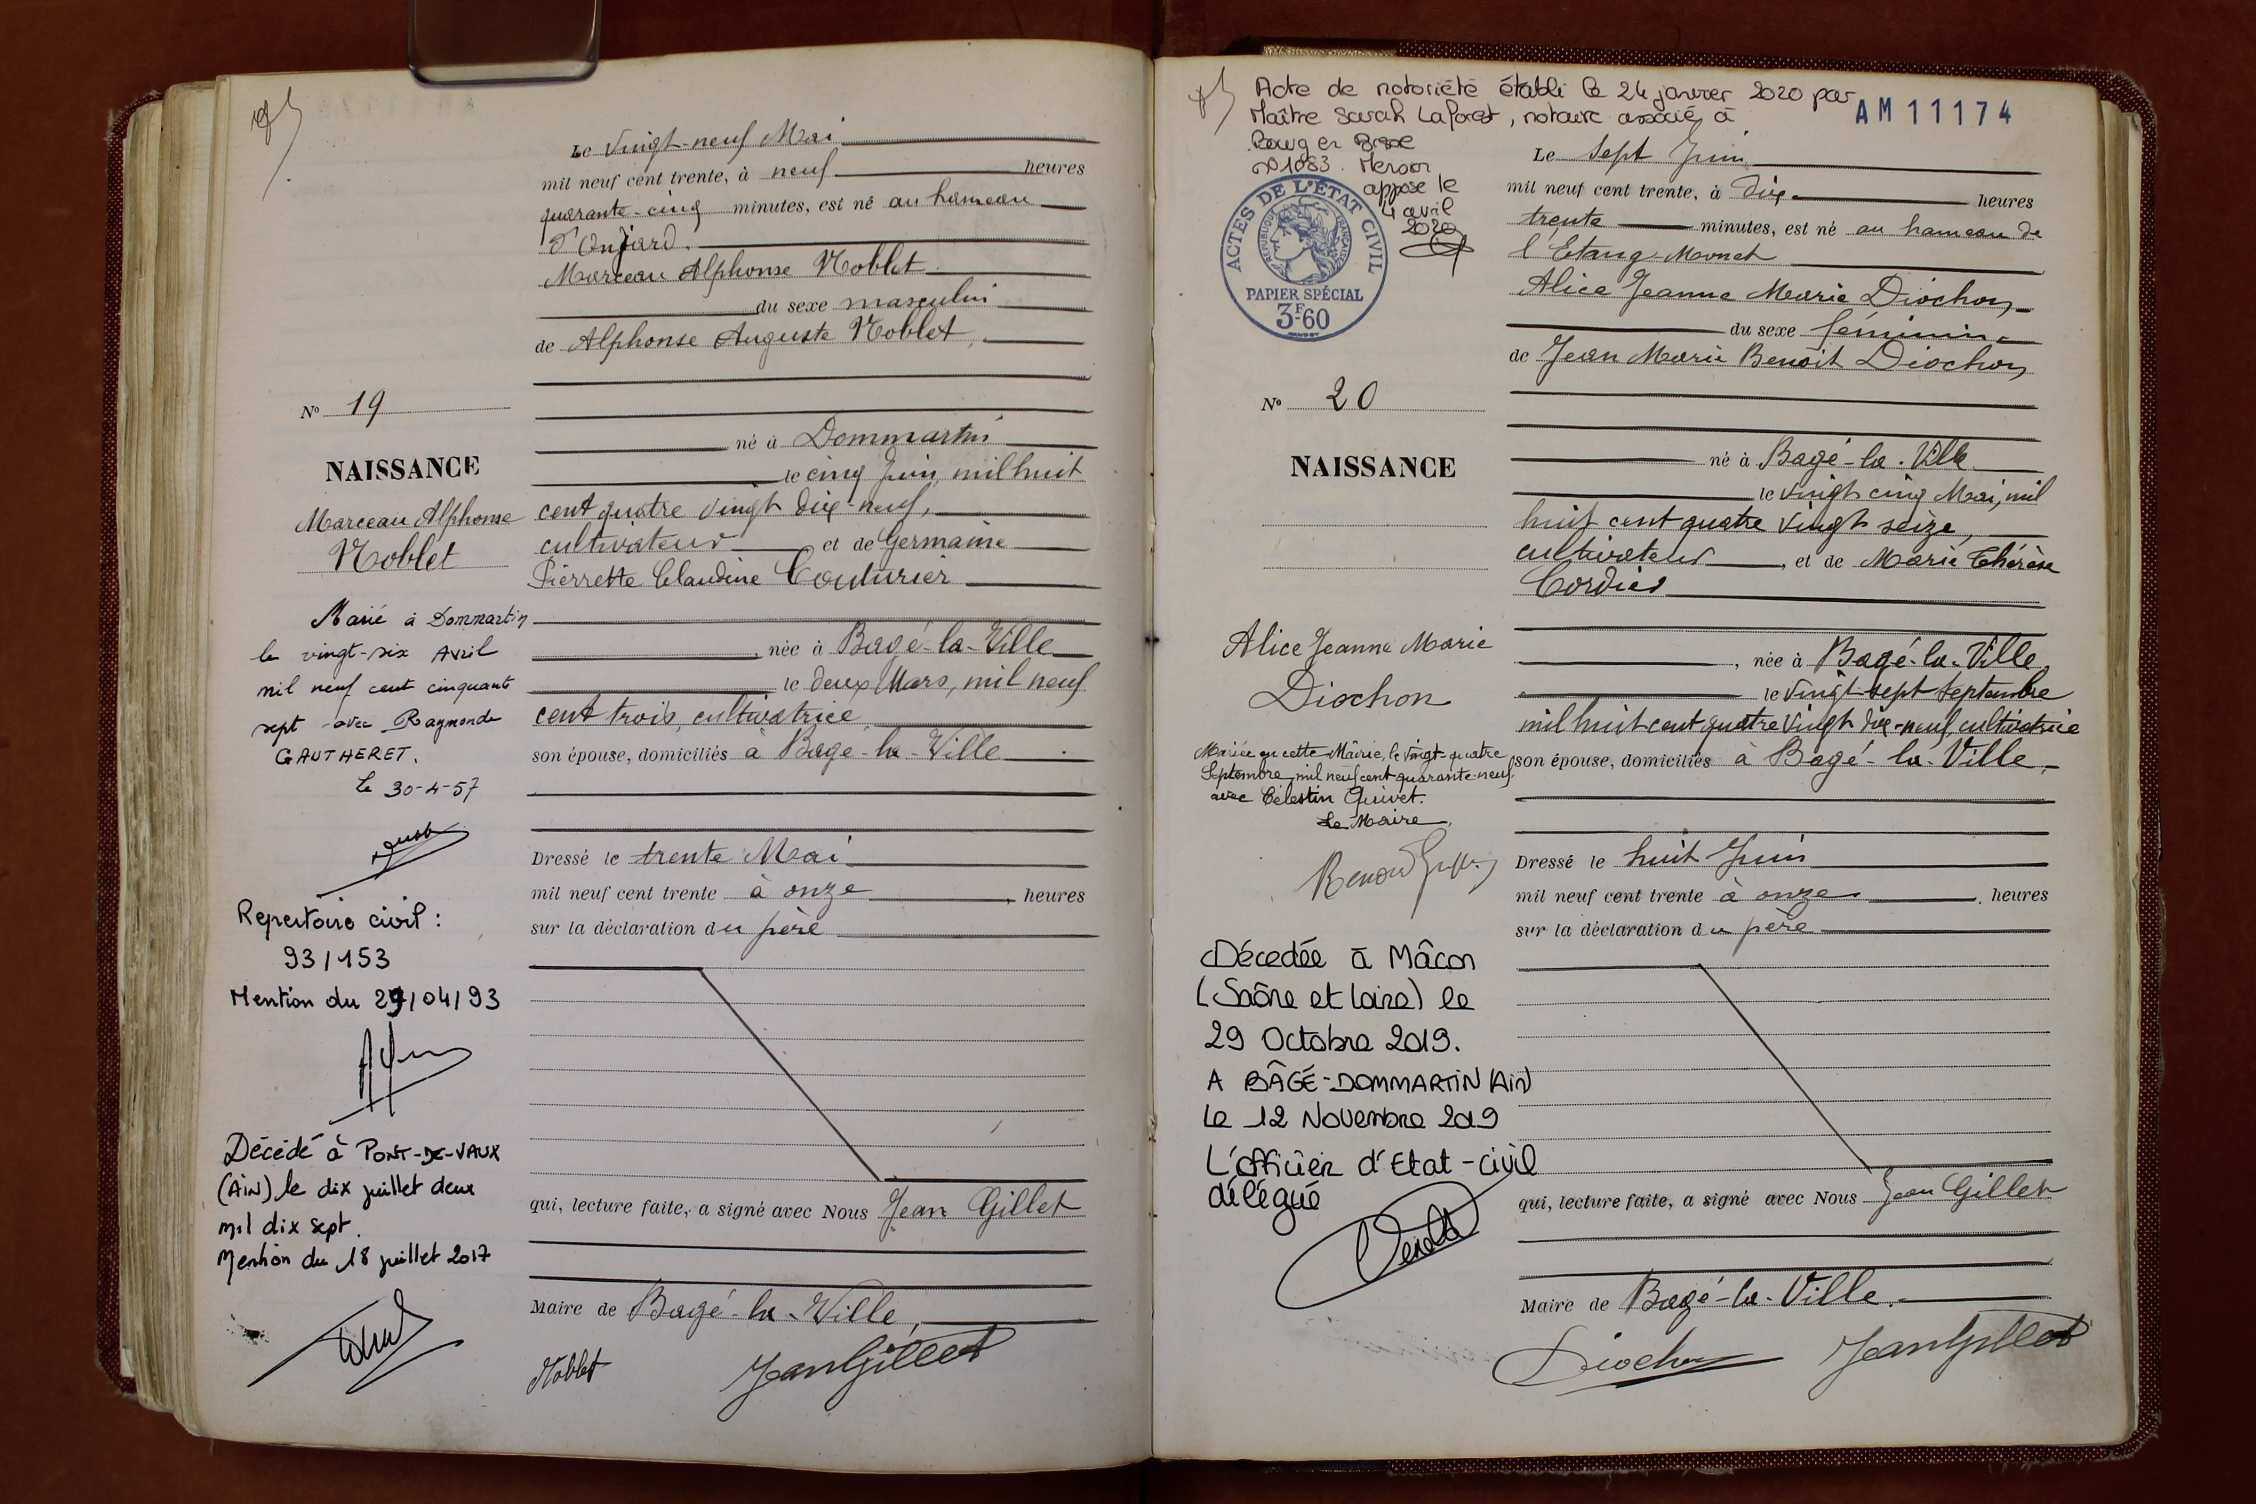 Le vingt-neuf Mai
mil neuf cent trente, à neuf heures
quarante-cinq minutes, est né au hameau
d'Onjard.
Marceau Alphonse Noblet
du sexe masculin
de Alphonse Auguste Noblet,
né à Dommartin
le cinq Juin, mil huit
cent quatre vingt dix-neuf,
cultivateur et de Germaine
Pierrette Claudine Couturier
, née à Bagé-la-Ville
le deux Mars, mil neuf
cent trois, cultivatrice
son épouse, domiciliés à Bagé-la-Ville
Dressé le trente Mai
mil neuf cent trente à onze , heures
sur la déclaration du père
qui, lecture faite, a signé avec Nous Jean Gillet
Maire de Bagé-la-Ville,
Noblet JeanGillet
No 19
NAISSANCE
Marceau Alphonse
Noblet
Marié à Dommartin
le vingt-six Avril
mil neuf cent cinquante
sept avec Raymonde
GAUTHERET.
Le 30-4-57
Repertoire civil :
93/153
Mention du 29/04/93
Décédé à PONT-DE-VAUX
(Ain) le dix juillet deux
mil dix sept.
Mention du 18 juillet 2017
Acte de notoriété établi le 24 janvier 2020 par
Maître Sarah Laforest, notaire associé à
01083. Mention
appose le
4 avril
2020
AM11174
ACTES DE L'ÉTAT CIVIL
RÉPUBLIQUE FRANÇAISE
PAPIER SPÉCIAL
3F60
Le sept Juin
mil neuf cent trente, à dix heures
trente minutes, est né au hameau de
l'Etang-Monet
Alice Jeanne Marie Diochon
du sexe féminin
de Jean Marie Benoit Diochon
né à Bagé-la-Ville
le vingt cinq Mai, mil
huit cent quatre vingt seize,
cultivateur , et de Marie Thérèse
Cordier
, née à Bagé-la-Ville
le vingt-sept Septembre
mil huit cent quatre vingt dix-neuf, cultivatrice
son épouse, domiciliés à Bagé-la-Ville
Dressé le huit Juin
mil neuf cent trente à onze , heures
sur la déclaration du père
qui, lecture faite, a signé avec Nous Jean Gillet
Maire de Bagé-la-Ville.
Diochon JeanGillet
No 20
NAISSANCE
Alice Jeanne Marie
Diochon
Mariée en cette Mairie, le vingt-quatre
Septembre mil neuf cent quarante-neuf
avec Célestin Quivet.
Le Maire,
Décedée à Mâcon
(Saône et Loire) le
29 Octobre 2019.
A BÂGÉ-DOMMARTIN (Ain)
Le 12 Novembre 2019
L'officier d'Etat-civil
délégué